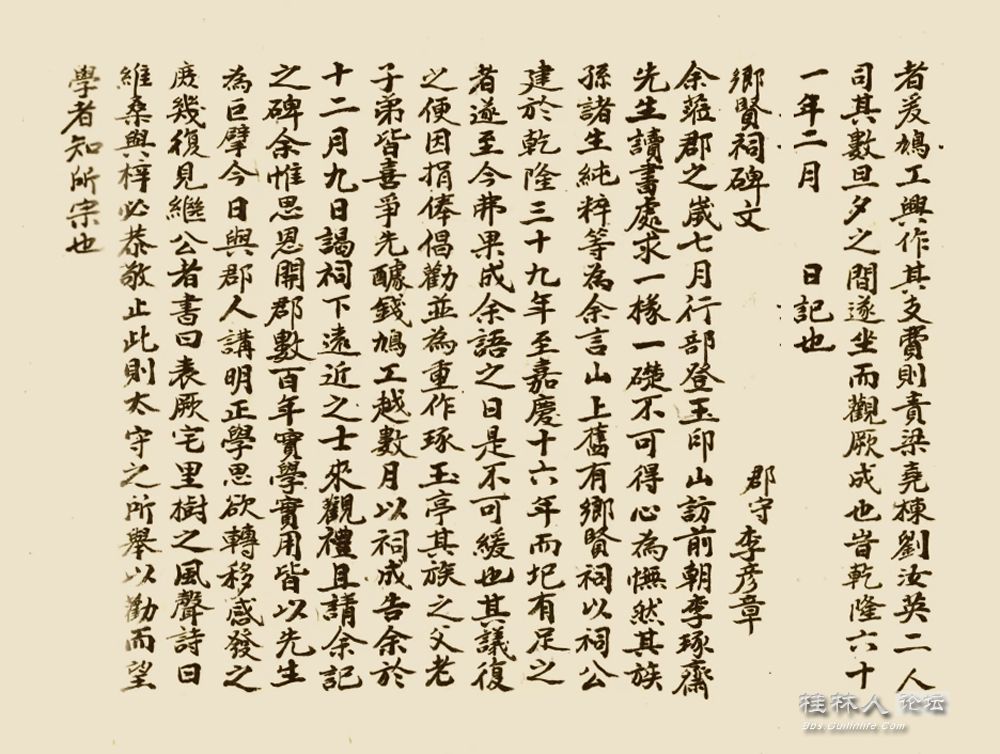 者爰鳩工興作其支費則責梁堯棟劉汝英二人
司其數旦夕之間遂坐而觀厥成也旹乾隆六十
一年二月 日記也
鄉賢祠碑文 郡守李彥章
余蒞郡之歲七月行部登玉印山訪前朝李琢齋
先生讀書處求一椽一礎不可得心為憮然其族
孫諸生純粹等為余言山上舊有鄉賢祠以祠公
建於乾隆三十九年至嘉慶十六年而圮有足之
者遂至今弗果成余語之日是不可緩也其議復
之便因捐俸倡勸並為重作琢玉亭其族之父老
子弟皆喜爭先醵錢鳩工越數月以祠成告余於
十二月九日謁祠下遠近之士來觀禮且請余記
之碑余惟思恩開郡數百年實學實用皆以先生
為巨擘今日與郡人講明正學思欲轉移感發之
庶幾復見繼公者書曰表厥宅里樹之風聲詩曰
維桑與梓必恭敬止此則太守之所舉以勸而望
學者知所宗也
桂林人论坛
Bbs.Guilinlife.Com